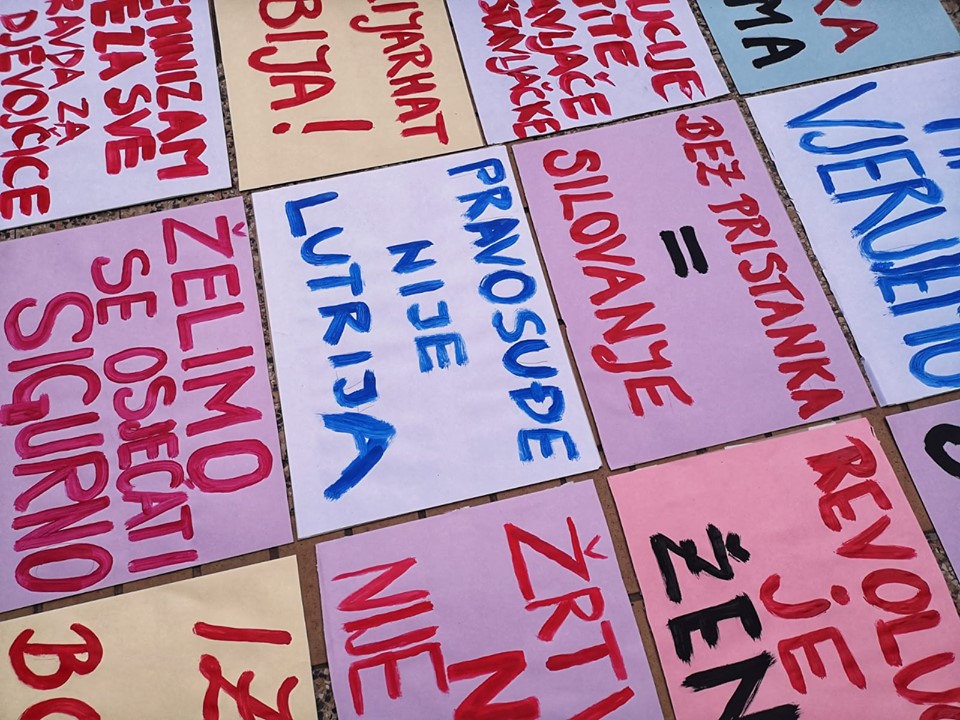 EMINIZAM
E ZA SVE
RAVDA ZA
DJEVOJČICE
IJARHAT
BIJA!
UCIJE
TITE
AVLJAČE
STAVLJAČKE
RA
MA
ŽELIMO
SE OSJEĆATI
SIGURNO
PRAVOSUĐE
NIJE
LUTRIJA
BEZ PRISTANKA
=
SILOVANJE
VJERUJEMO
ŽRT
NIJE
REVOLU
JE
ŽEN